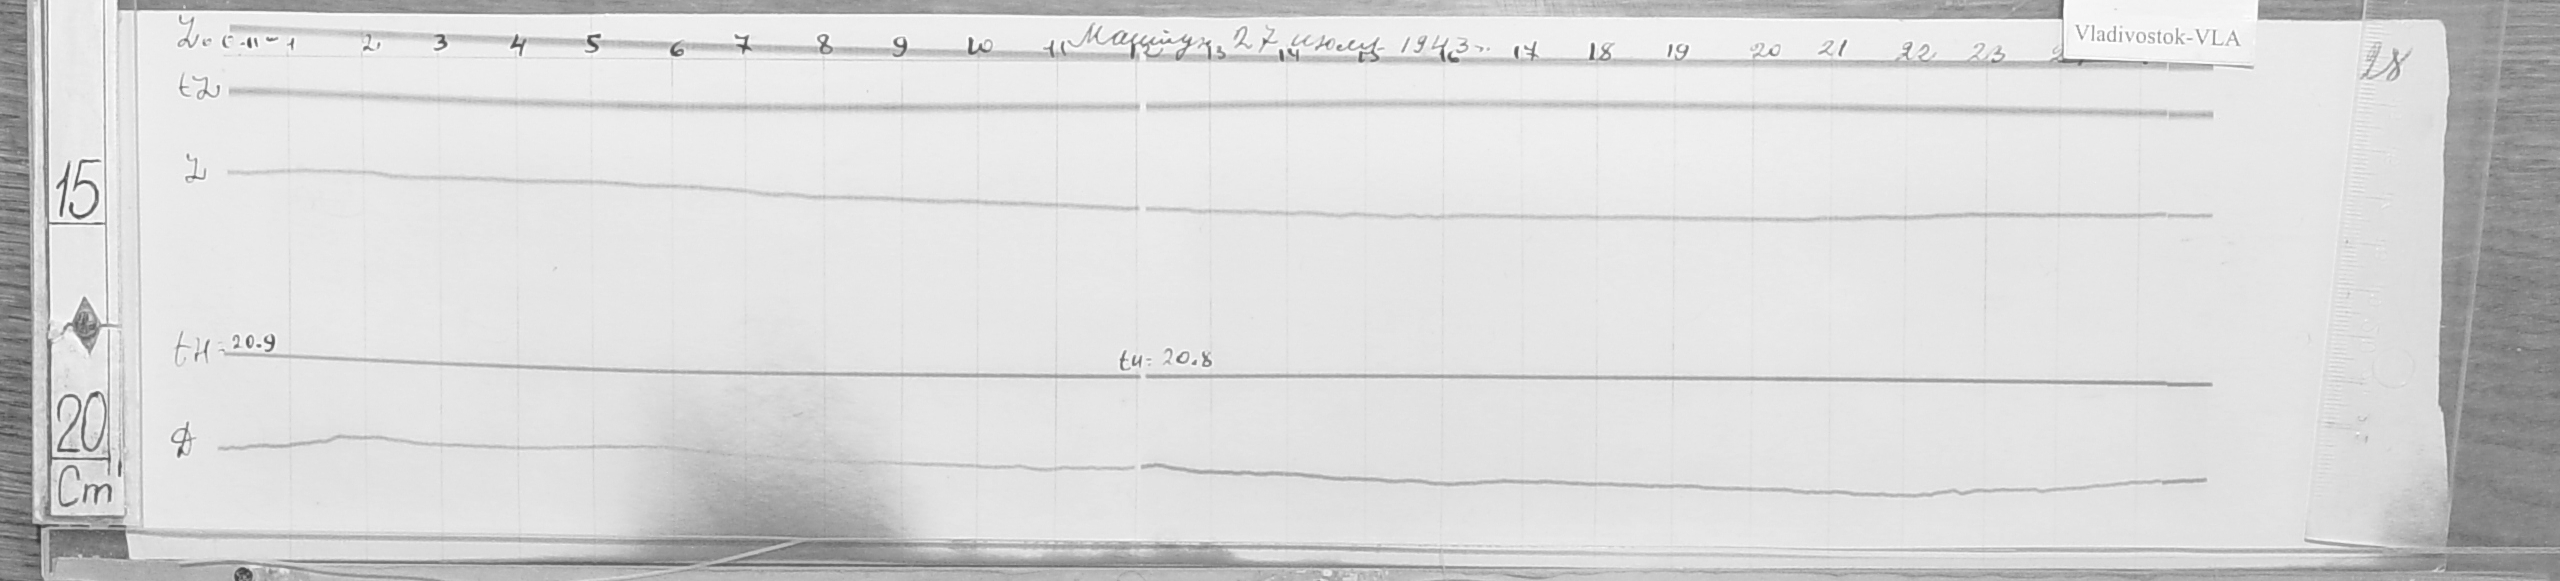 Vladivostok-VLA
28
1 2 3 4 5 6 7 8 9 10 11 12 13 14 15 16 17 18 19 20 21 22 23
27 июля 1943 г.
tZ
Z
tH = 20.9
tн = 20.8
D
15
20
Cm